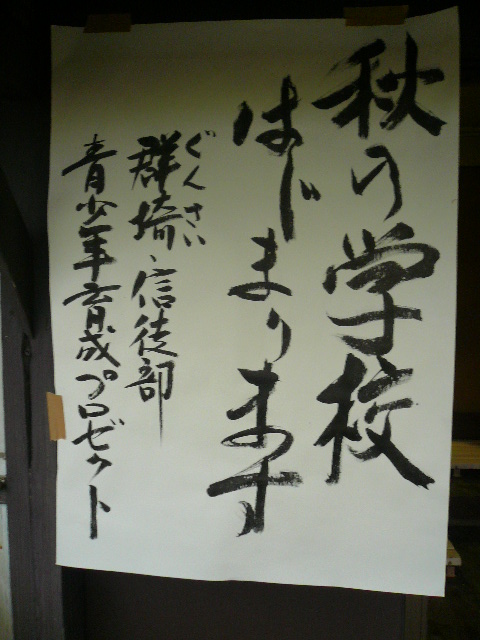 秋の学校
はじまります
ぐんさい
群埼・信徒部
青少年育成プロゼクト